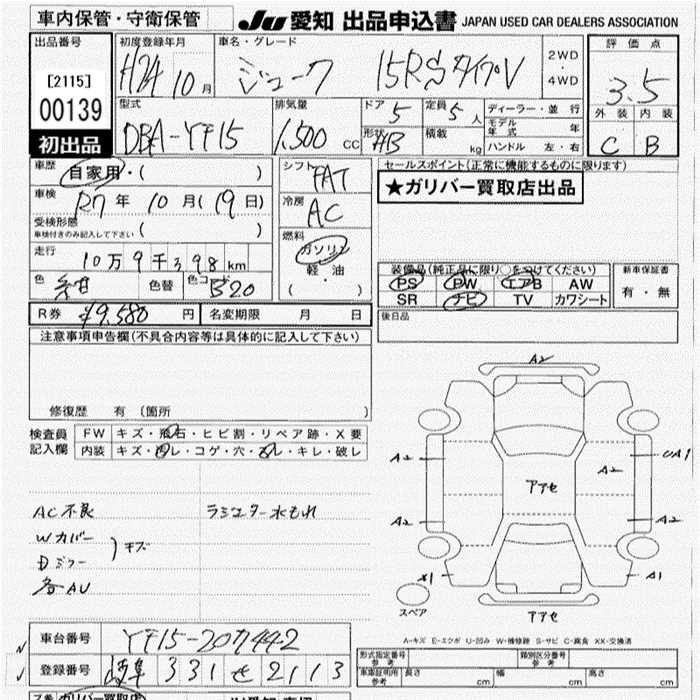 車内保管・守衛保管
JU 愛知 出品申込書 JAPAN USED CAR DEALERS ASSOCIATION
出品番号 初度登録年月 車名・グレード 評価点
[2115] 00139 H24 10月 ジューク 15RSタイプV 2WD・4WD 3.5
型式 排気量 ドア 5 定員 5人 ディーラー・並行 外装 内装
初出品 DBA-YF15 1,500 cc 形状 HB 積載 kg モデル年式 年 C B
ハンドル 左・右
車歴 自家用・( ) シフト FAT セールスポイント(正常に機能するものに限ります)
車検 R7年 10月(19日) 冷房 AC ★ガリバー買取店出品
受検形態
車検付きのみ記入して下さい ( )
燃料 ガソリン 軽油 ・( )
走行 10万9千398km
色 紺 色替 色コード B20
装備品(純正品に限り○をつけてください) 新車保証書
PS PW エアB AW 有・無
SR ナビ TV カワシート
R券 ¥9,580円 名変期限 月 日 後日品
注意事項申告欄(不具合内容等は具体的に記入して下さい)
修復歴 有(箇所 )
検査員記入欄 FW キズ・飛石・ヒビ割・リペア跡・X要
内装 キズ・凹レ・コゲ・穴・スレ・キレ・破レ
AC不良 ラジエター水もれ
Wカバー
Dミラー )キズ
各AU
A2
A2 UA1
A2
アアセ
A2 A2
X1 A1
スペア アアセ
A-キズ E-エクボ U-凹み W-補修跡 S-サビ C-腐食 XX-交換済
車台番号 YF15-207442
登録番号 岐阜 331 せ 2113
型式指定番号 参考 類別区分番号 参考
車庫証明用 参考 長さ cm 幅 cm 高さ cm
ガリバー買取店